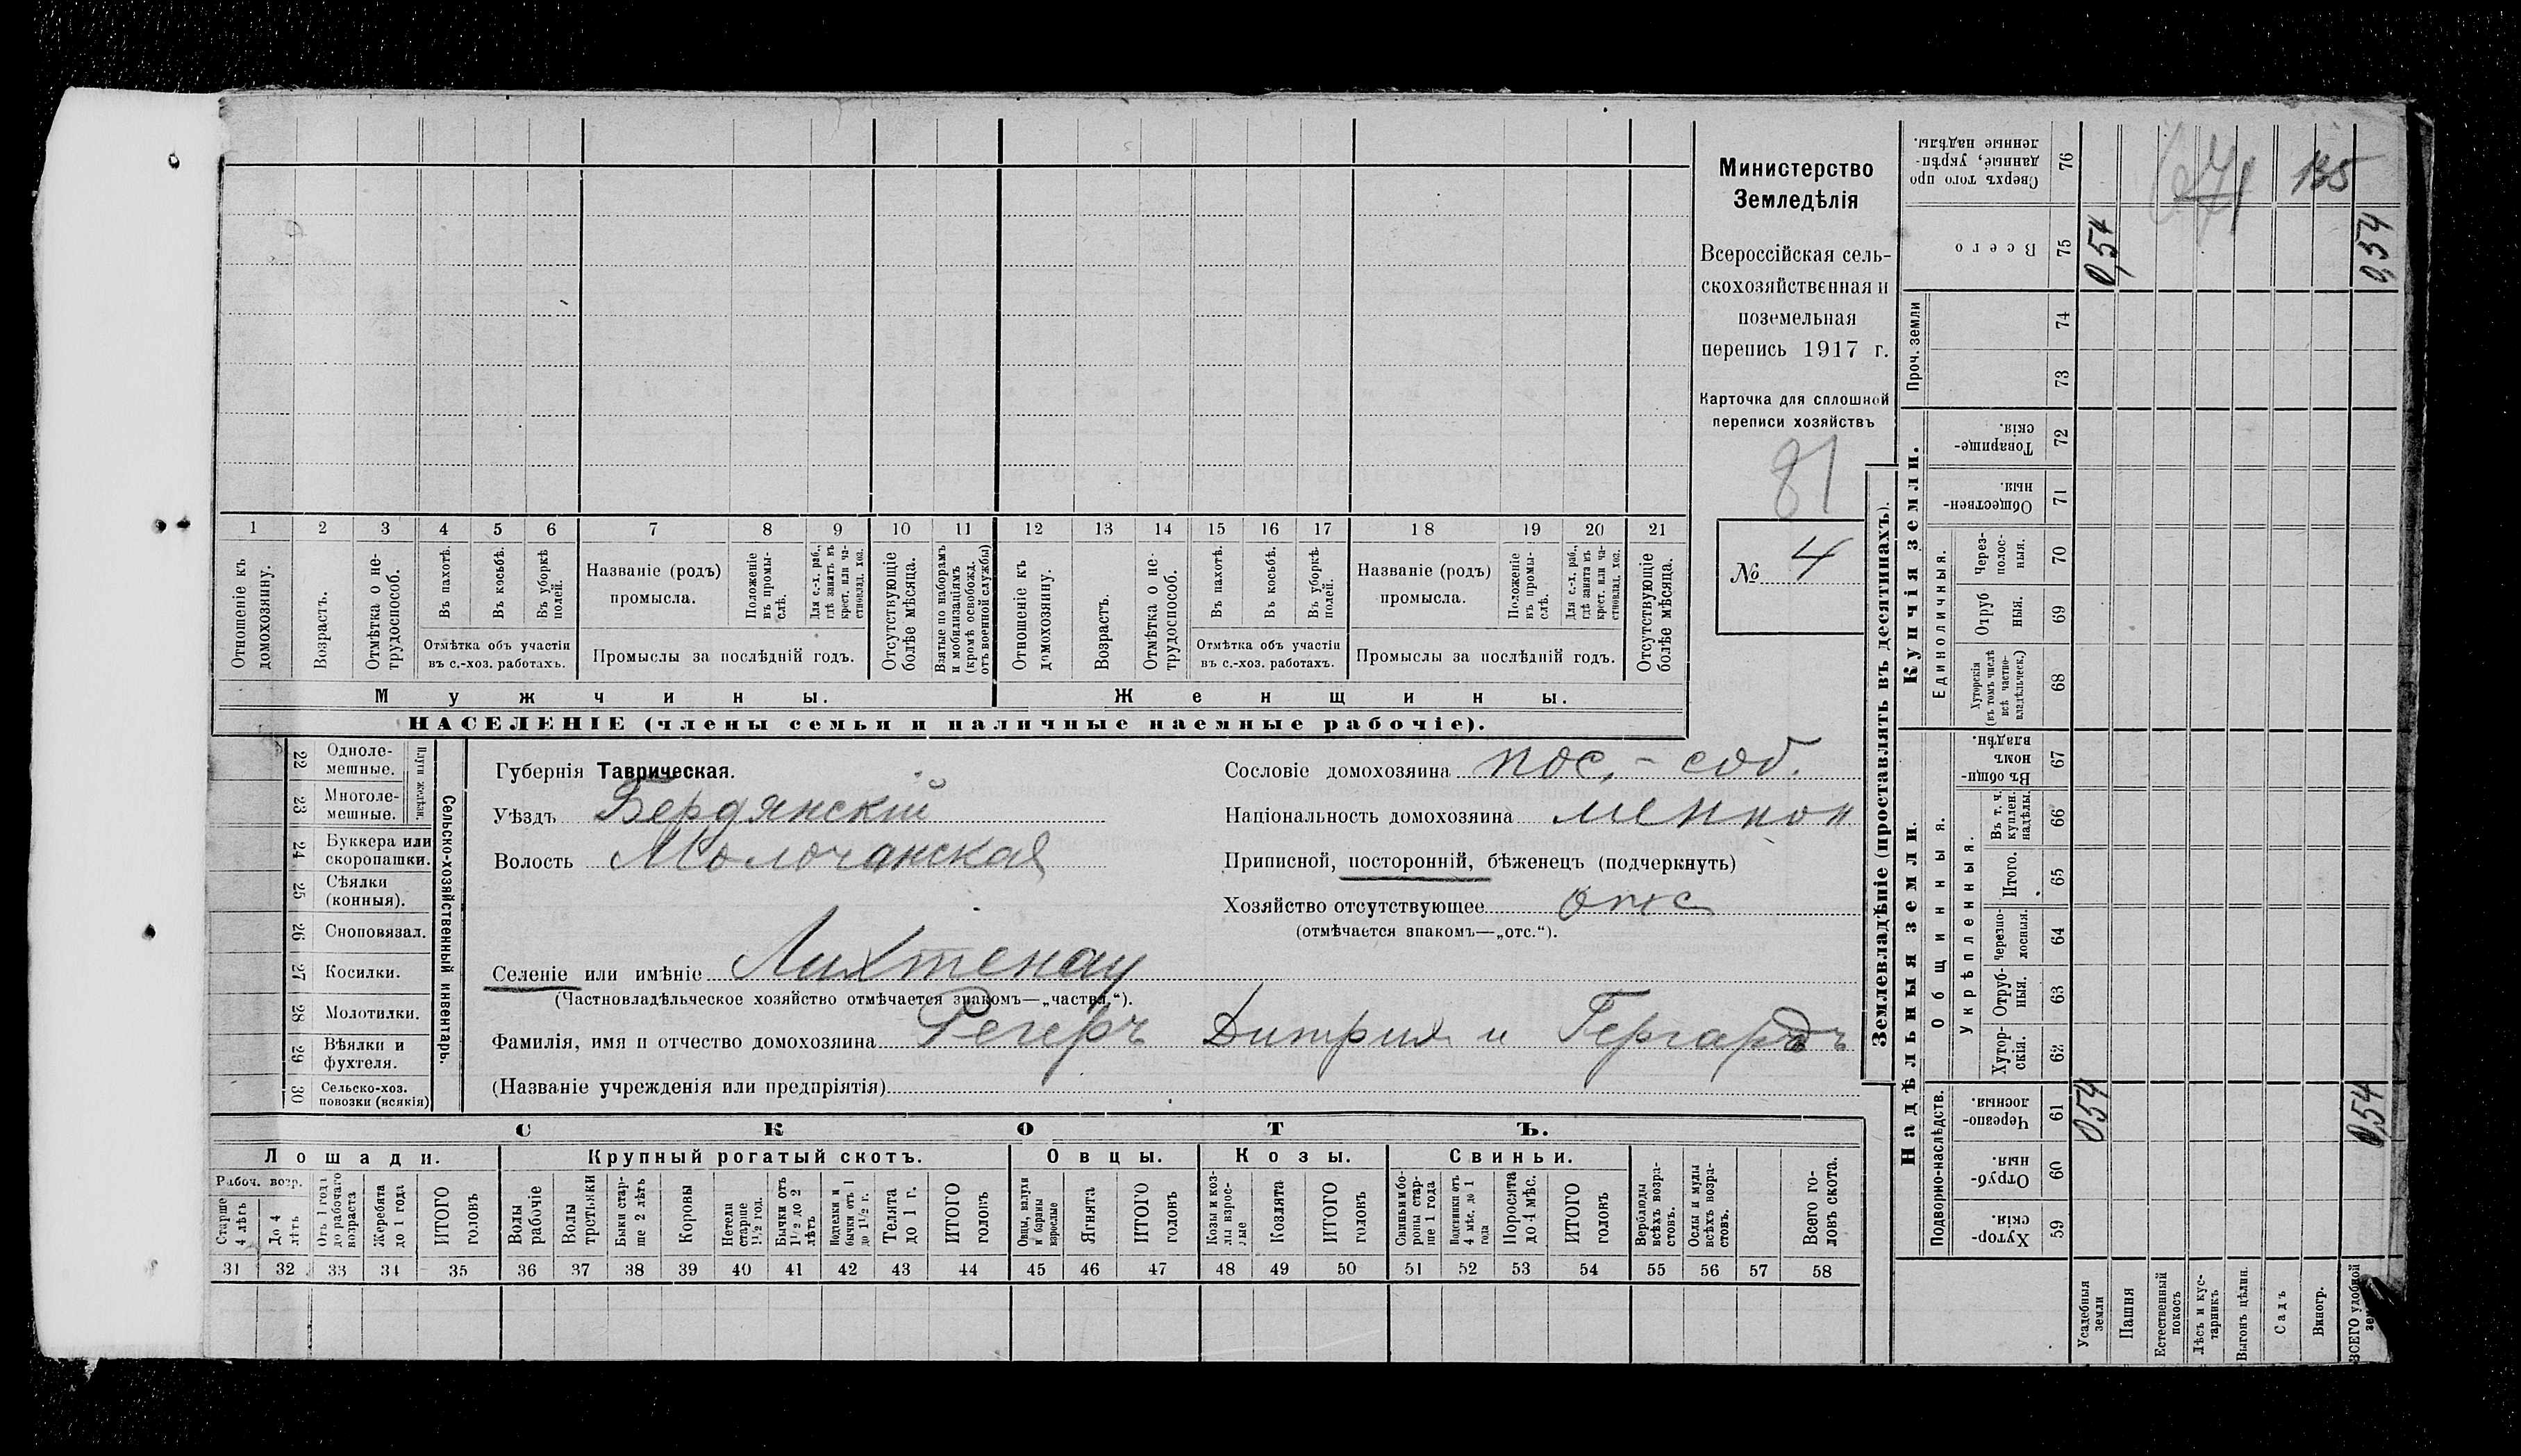 Министерство
Земледѣлія
Всероссійская сель-
скохозяйственная и
поземельная
перепись 1917 г.
Карточка для сплошной
переписи хозяйствъ
81
№ 4
1 2 3 4 5 6 7 8 9 10 11 12 13 14 15 16 17 18 19 20 21
Отношеніе къ домохозяину.
Возрастъ.
Отмѣтка о не-трудоспособ.
Въ пахотѣ.
Въ косьбѣ.
Въ уборкѣ полей.
Отмѣтка объ участіи
въ с.-хоз. работахъ.
Названіе (родъ)
промысла.
Положеніе въ промы-слѣ.
Для с.-х. раб., гдѣ занятъ въ крест. или ча-стновлад. хоз.
Промыслы за послѣдній годъ.
Отсутствующіе болѣе мѣсяца.
Взятые по наборамъ и мобилизаціямъ (кромѣ освобожд. отъ военной службы)
Отношеніе къ домохозяину.
Возрастъ.
Отмѣтка о не-трудоспособ.
Въ пахотѣ.
Въ косьбѣ.
Въ уборкѣ полей.
Отмѣтка объ участіи
въ с.-хоз. работахъ.
Названіе (родъ)
промысла.
Положеніе въ промы-слѣ.
Для с.-х. раб., гдѣ занята въ крест. или ча-стновлад. хоз.
Промыслы за послѣдній годъ.
Отсутствующіе болѣе мѣсяца.
Мужчины. Женщины.
НАСЕЛЕНІЕ (члены семьи и наличные наемные рабочіе).
22 Одноле-мешные.
23 Многоле-мешные.
Плуги желѣзн.
24 Буккера или скоропашки.
25 Сѣялки (конныя).
26 Сноповязал.
27 Косилки.
28 Молотилки.
29 Вѣялки и фухтеля.
30 Сельско-хоз. повозки (всякія)
Сельско-хозяйственный инвентарь.
Губернія Таврическая.
Уѣздъ Бердянскій
Волость Молочанская
Сословіе домохозяина пос.-соб.
Національность домохозяина меннон
Приписной, посторонній, бѣженецъ (подчеркнуть)
Хозяйство отсутствующее отс
(отмѣчается знакомъ—„отс.“).
Селеніе или имѣніе Лихтенау
(Частновладѣльческое хозяйство отмѣчается знакомъ—„частвл.“).
Фамилія, имя и отчество домохозяина Регеръ Дитрих и Гергардъ
(Названіе учрежденія или предпріятія)
СКОТЪ.
Лошади. Крупный рогатый скотъ. Овцы. Козы. Свиньи.
Рабоч. возр.
Старше 4 лѣтъ
До 4 лѣтъ
Отъ 1 года до рабочаго возраста
Жеребята до 1 года
ИТОГО головъ
Волы рабочіе
Волы третьяки
Быки стар-ше 2 лѣтъ
Коровы
Нетели старше 1½ год.
Бычки отъ 1½ до 2 лѣтъ
Подтелки и бычки отъ 1 до 1½ г.
Телята до 1 г.
ИТОГО головъ
Овцы, валухи и бараны взрослые
Ягнята
ИТОГО головъ
Козы и коз-лы взрос-лые
Козлята
ИТОГО головъ
Свиньи и бо-ровы стар-ше 1 года
Подсвинки отъ 4 мѣс. до 1 года
Поросята до 4 мѣс.
ИТОГО головъ
Верблюды всѣхъ возра-стовъ.
Ослы и мулы всѣхъ возра-стовъ.
Всего го-ловъ скота.
31 32 33 34 35 36 37 38 39 40 41 42 43 44 45 46 47 48 49 50 51 52 53 54 55 56 57 58
Землевладѣніе (проставлять въ десятинахъ).
Купчія земли.
Надѣльныя земли.
Сверхъ того про-данные, укрѣп-ленные надѣлы. 76
Всего 75
Проч. земли
74
73
Товарище-скія. 72
Обществен-ныя. 71
Единоличныя.
Через-полос-ныя. 70
Отруб-ныя. 69
Хуторскія (въ томъ числѣ всѣ частно-владѣльческ.) 68
Въ общи-номъ владѣн. 67
Общинныя.
Укрѣпленныя.
Въ т. ч. куплен. надѣлы. 66
Итого. 65
Черезпо-лосныя. 64
Отруб-ныя. 63
Хутор-скія. 62
Подворно-наслѣдств.
Черезпо-лосныя. 61
Отруб-ныя. 60
Хутор-скія. 59
Усадебныя земли
Пашня
Естественный покосъ
Лѣсъ и кус-тарникъ
Выгонъ цѣлин.
Садъ
Виногр.
ВСЕГО удобной
671
135
0,54
0,54
0,54
0,54